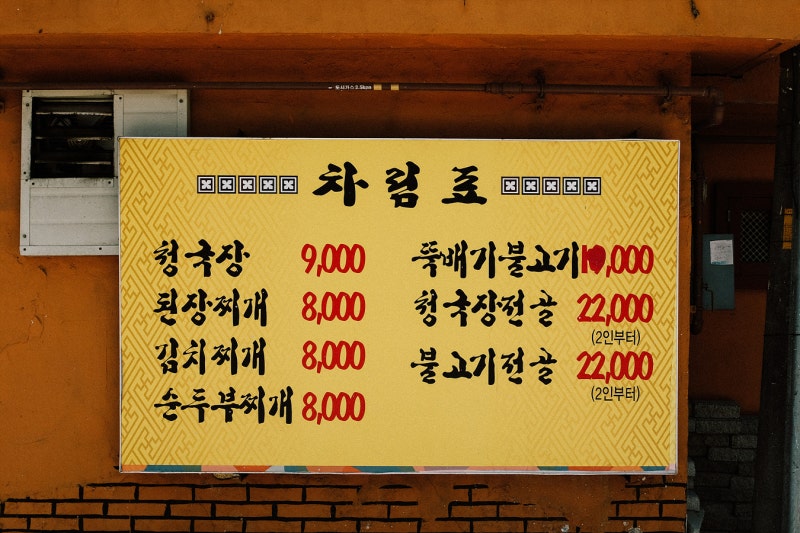 차림표
청국장 9,000
된장찌개 8,000
김치찌개 8,000
순두부찌개 8,000
뚝배기불고기 10,000
청국장전골 22,000
(2인부터)
불고기전골 22,000
(2인부터)